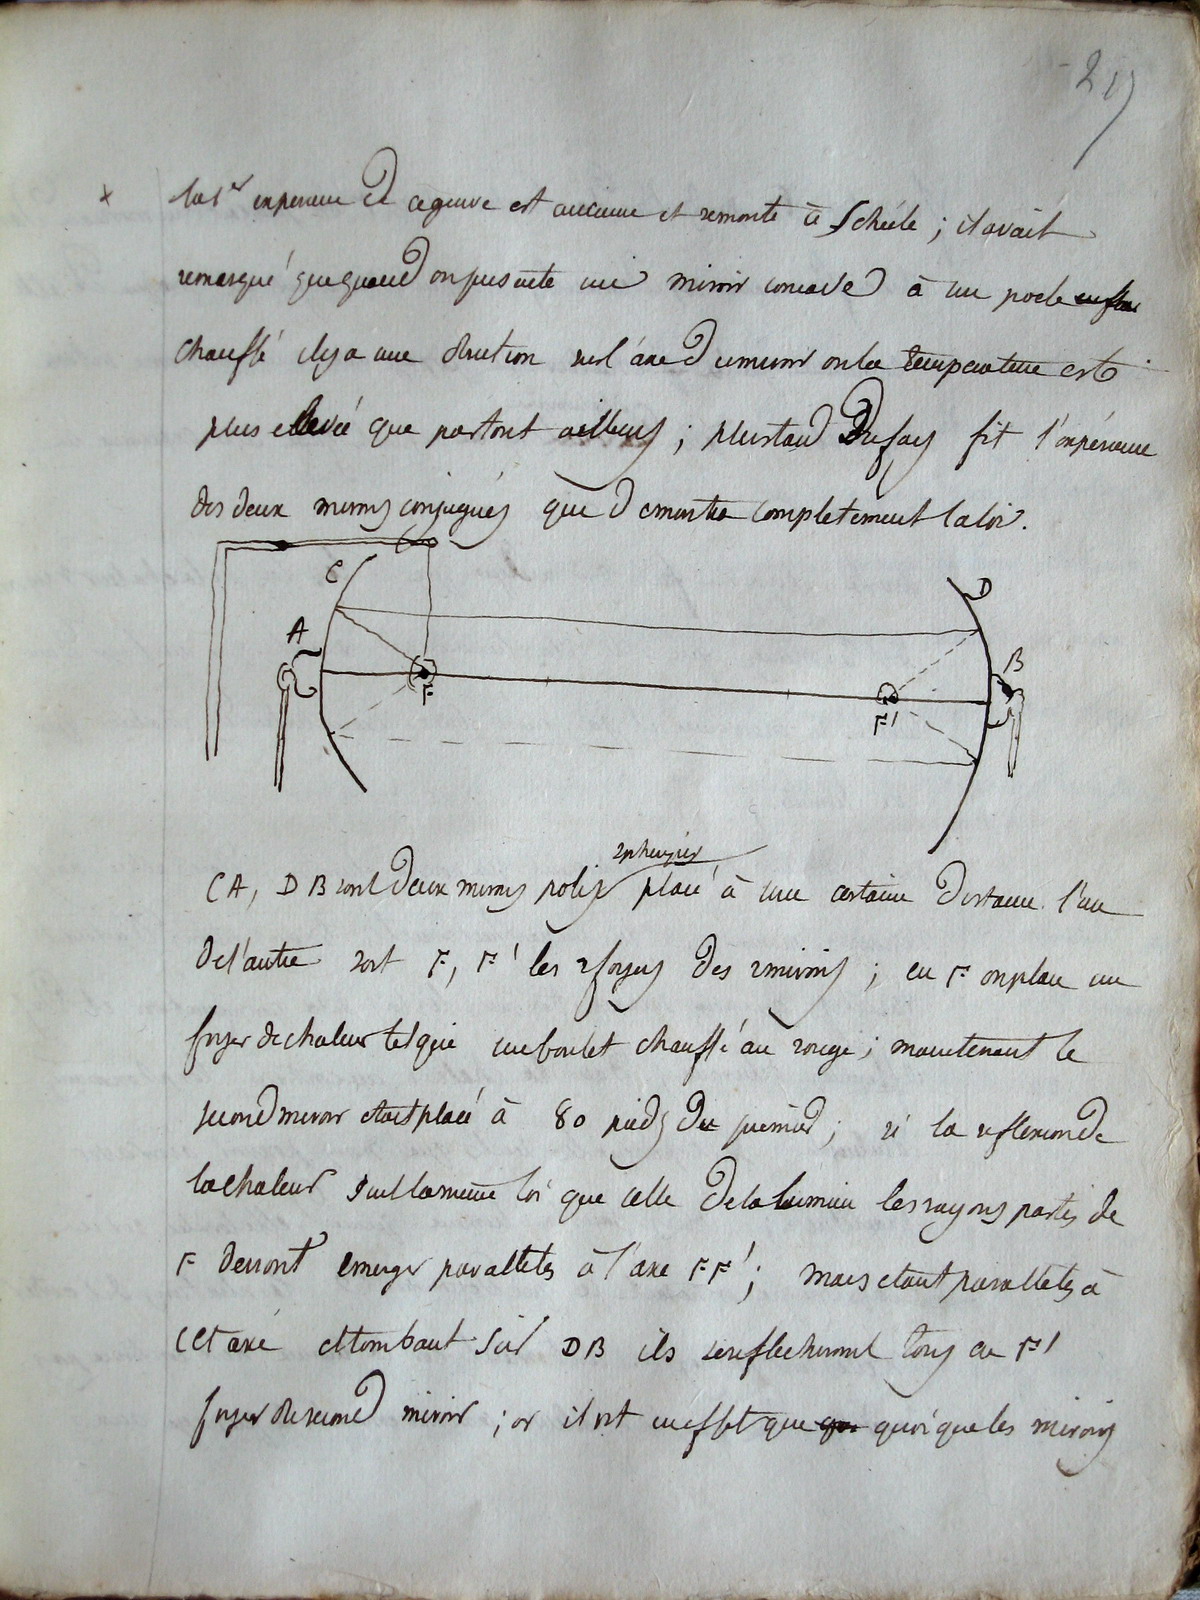 217
x la 1er experience de ce genre est ancienne et remonte à Schéele ; il avait
remarqué que quand on presente un miroir concave à un poele
chauffé il y a une direction sur l'axe du miroir ou la temperature est
plus elevée que partout ailleurs ; plus tard Dufay fit l'expérience
des deux miroirs conjugués que demontre completement la loi.
C
D
A
B
F
F'
spheriques
CA, DB sont deux miroirs polis placé à une certaine distance l'un
de l'autre soit F, F' les 2 foyers des 2 miroirs ; en F on place un
foyer de chaleur tel que un boulet chauffé au rouge ; maintenant le
second miroir etait placé à 80 pieds du premier ; si la reflexion de
la chaleur suit la meme loi que celle de la lumiere les rayons partis de
F devront emerger paralleles à l'axe FF' ; mais etant paralleles à
cet axe et tombant sur DB ils se reflechiront tous en F'
foyer du second miroir ; or il est en effet que que quoique les miroirs